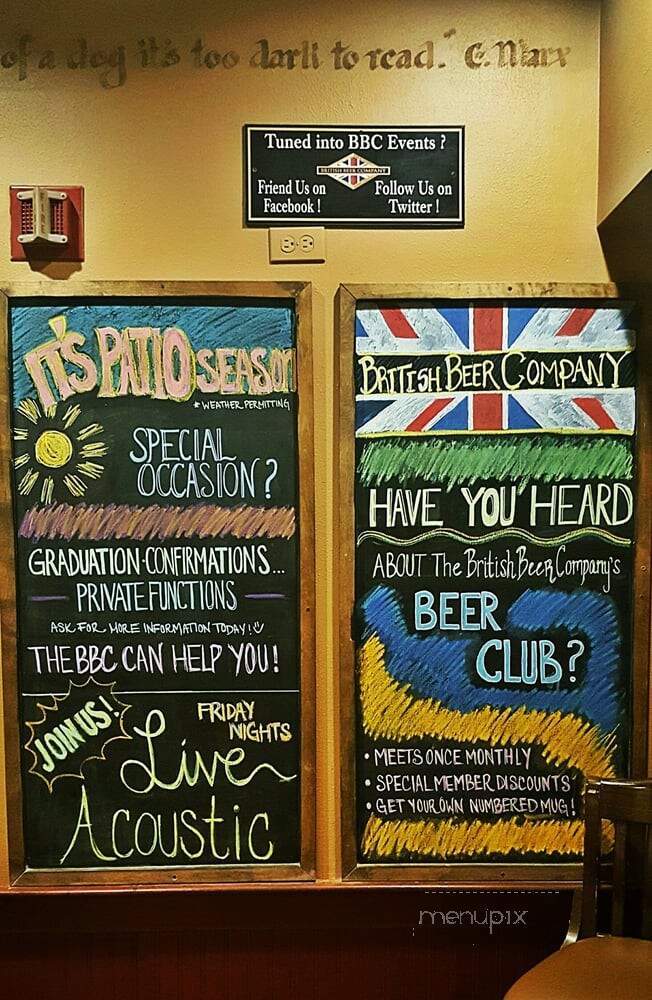 of a dog it's too dark to read." G. Marx
Tuned into BBC Events ?
BRITISH BEER COMPANY
Friend Us on
Facebook !
Follow Us on
Twitter !
FIRE
IT'S PATIO SEASON
* WEATHER PERMITTING
SPECIAL
OCCASION?
GRADUATION-CONFIRMATIONS...
PRIVATE FUNCTIONS
ASK FOR MORE INFORMATION TODAY!
THE BBC CAN HELP YOU!
JOIN US!
FRIDAY
NIGHTS
Live
Acoustic
BRITISH BEER COMPANY
HAVE YOU HEARD
ABOUT The British Beer Company's
BEER
CLUB?
• MEETS ONCE MONTHLY
• SPECIAL MEMBER DISCOUNTS
• GET YOUR OWN NUMBERED MUG!
menupix